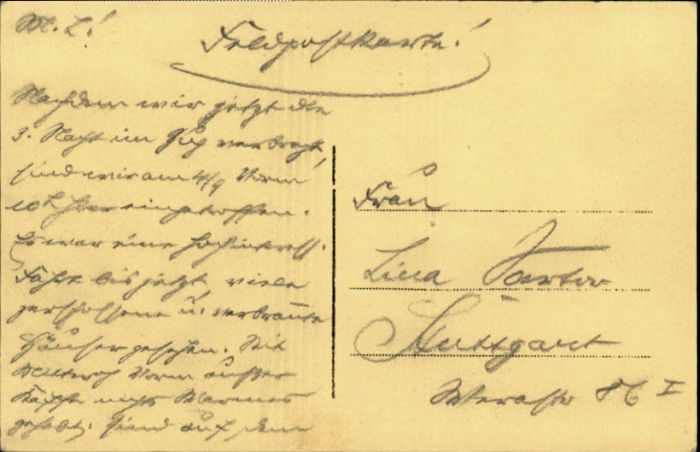 M. L!
Feldpostkarte!
Nachdem wir jetzt die
3. Nacht im Zug verbracht,
sind wir am 4/9 Vorm
10h hier eingetroffen.
Es war eine hochinteress.
Fahrt bis jetzt, viele
zerschossene u. verbrannte
Häuser gesehen. Seit
Mittwoch Vorm außer
Kaffee nichts Warmes
gehabt. Sind auf dem
Frau
Lina
Stuttgart
86 I